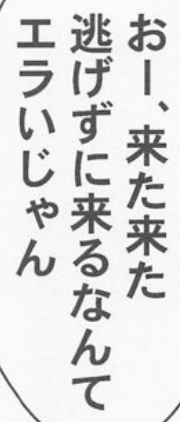 おー、来た来た
逃げずに来るなんて
エラいじゃん